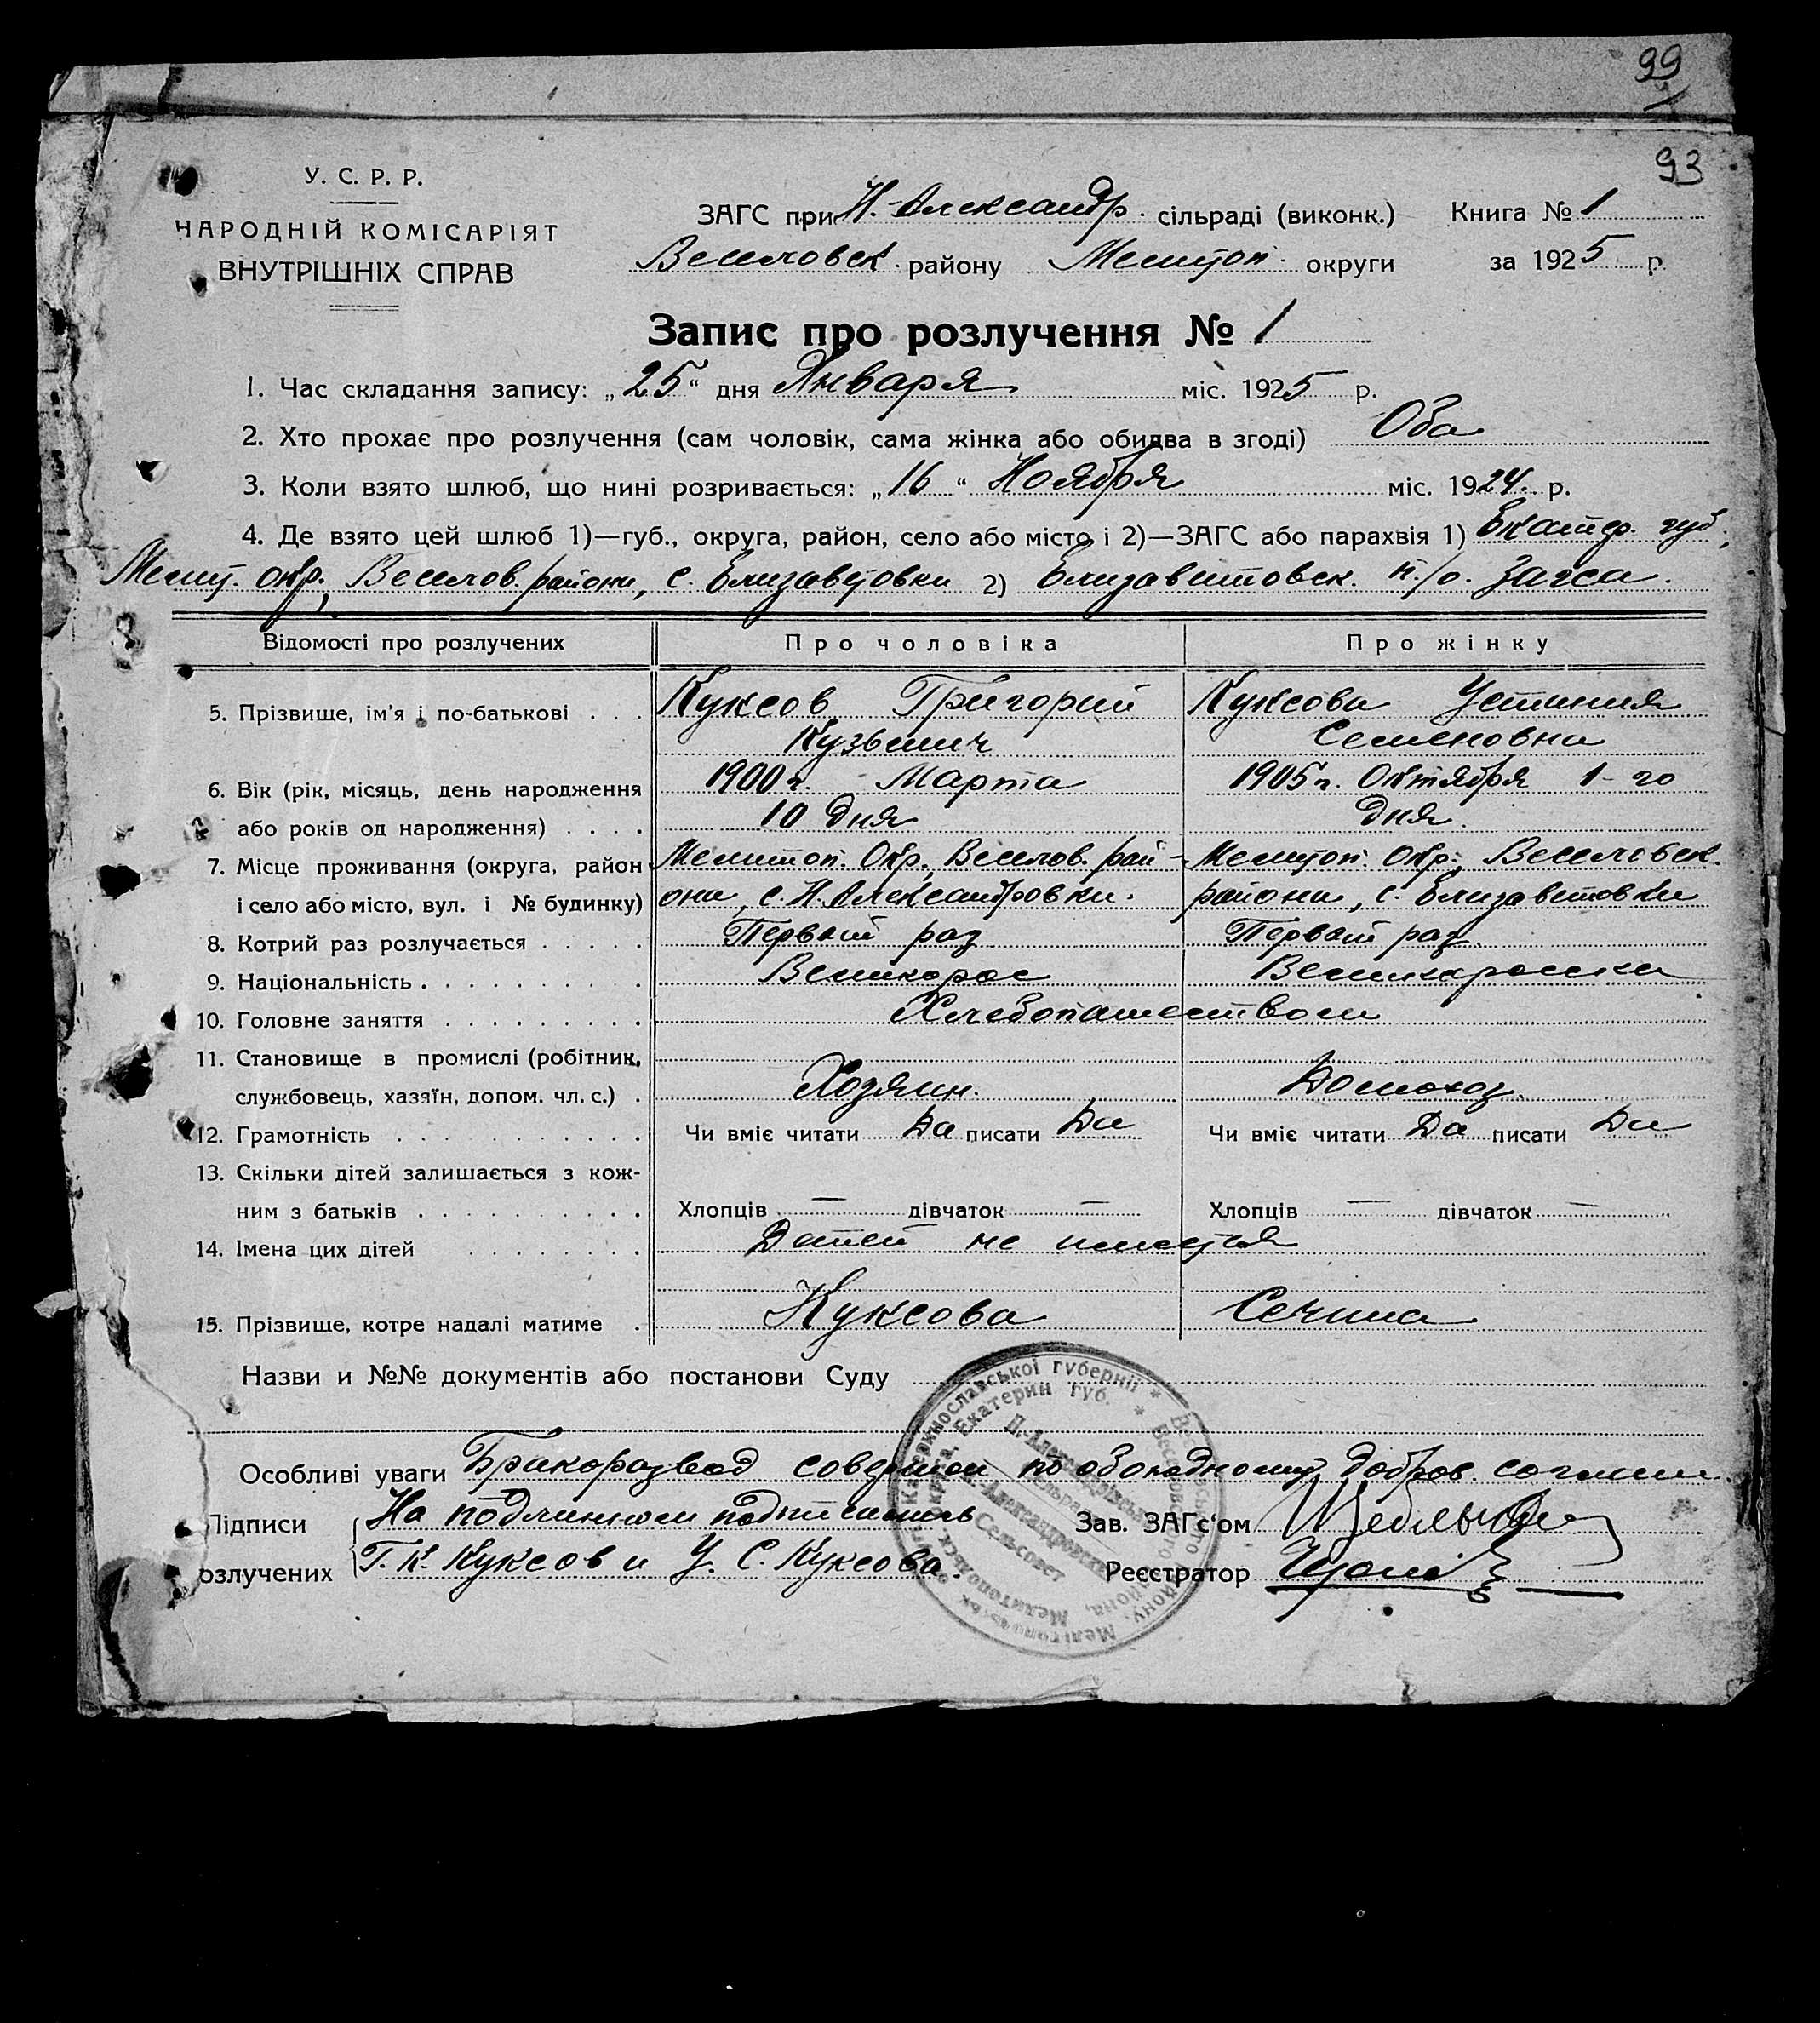 99
93
У. С. Р. Р.
НАРОДНІЙ КОМІСАРІЯТ
ВНУТРІШНІХ СПРАВ
ЗАГС при Н.-Александр. сільраді (виконк.) Книга № 1
Веселовск. району Мелитоп. округи за 1925 р.
Запис про розлучення № 1
1. Час складання запису: „25“ дня Января міс. 1925 р.
2. Хто прохає про розлучення (сам чоловік, сама жінка або обидва в згоді) Оба
3. Коли взято шлюб, що нині розривається: „16“ Ноября міс. 1924. р.
4. Де взято цей шлюб 1)—губ., округа, район, село або місто і 2)—ЗАГС або парахвія 1) Екатер. губ.,
Мелит. окр., Веселов. района, с. Елизаветовки 2) Елизаветовск. п/о. Загса.
Відомості про розлучених Про чоловіка Про жінку
5. Прізвище, ім’я і по-батькові . . . Куксов Григорий Куксова Устиния
Кузьмич Семеновна
6. Вік (рік, місяць, день народження 1900 г. Марта 1905 г. Октября 1-го
або років од народження) . . . . 10 дня дня.
7. Місце проживання (округа, район Мелитоп. Окр., Веселов. рай- Мелитоп. Окр., Веселовск.
і село або місто, вул. і № будинку) она, с. Н. Александровки. района, с. Елизаветовки
8. Котрий раз розлучається . . . . . Первый раз Первый раз.
9. Національність . . . . . . . . . . Великорос Великоросска
10. Головне заняття . . . . . . . . . Хлебопашеством
11. Становище в промислі (робітник,
службовець, хазяїн, допом. чл. с.) . Хозяин. Домохоз.
12. Грамотність . . . . . . . . . . . Чи вміє читати Да писати Да Чи вміє читати Да писати Да
13. Скільки дітей залишається з кож-
ним з батьків . . . . . . . . . . Хлопців — дівчаток — Хлопців — дівчаток —
14. Імена цих дітей . . . . . . . . Детей не имеется
15. Прізвище, котре надалі матиме . Куксова Сечина
Назви и №№ документів або постанови Суду
Особливі уваги Бракоразвод совершон по обоюдному добров. соглаш.
Підписи На подлинном подписались Зав. ЗАГс‘ом
озлучених Г. К. Куксов и У. С. Куксова. Реєстратор
Катеринославської губернії * Веселівського району, Мелітопільськ
Екатерин губ. * Веселовского района, Мелитопольск. округа.
Н.-Александрівська сельрада
Н.-Александровский Сельсовет